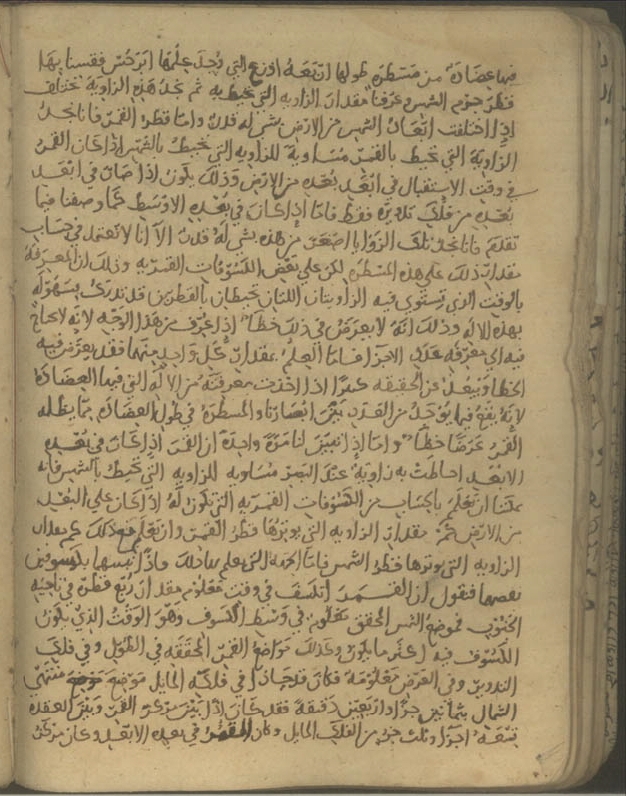 فيها عضادة من مسطرة طولها اربعة اذرع التي يدل عليها ابرخس فقسنا بها
قطر جرم الشمس عرفنا مقدار الزاوية التي تحيط به ثم نجد هذه الزاوية تختلف
اذا اختلفت ابعاد الشمس من الارض بشي له قدر واما قطر القمر فانا نجد
الزاوية التي تحيط بالقمر مساوية للزاويه التي تحيط بالشمس اذا كان القمر
في وقت الاستقبال في ابعد بعده من الارض وذلك يكون اذا صار في ابعد
بعده من فلك تدويره فقط فاما اذا كان في بعده الاوسط كما وصفنا فيما
تقدم فانا نجد تلك الزوايا اصغر من هذه بشي له قدر الا انا لا نعتمد في حساب
مقدار ذلك على هذه المسطرة لكن على بعض الكسوفات القمريه وذلك ان المعرفة
بالوقت الذي تستوي فيه الزاويتان اللتان تحيطان بالقطرين قد تدرك بسهولة
بهذه الاله وذلك انه لا يعرض في ذلك خطأ اذ عرف من هذا الوجه لانه لا يحتاج
فيه الى معرفة عدد الاجزا فاما العلم بمقدار كل واحد منهما فقد يعرض فيه
الخطا ويبعد عن الحقيقه كثيرا اذا اخذت معرفته من الالة التي فيها العضادة
لانه يقع فيما يوخذ من القدر بين ابصارنا والمسطرة في طول العضادة مما يظله
القمر عرضا خطأ واما اذا تبين لنا مرة واحدة ان القمر اذا كان في بعده
الابعد احاطت به زاوية عند البصر مساويه للزاويه التي تحيط بالشمس فانه
يمكننا ان نعلم بالحساب من الكسوفات القمريه التي تكون له اذا كان على البعد
من الارض كم مقدار الزاويه التي يوترها قطر القمر وان نعلم مع ذلك كم مقدار
الزاويه التي يوترها قطر الشمس فاما الجهة التي نعلم بها ذلك فاذا نبينها بكسوفين
نصفهما فنقول ان القمر انكسف في وقت معلوم مقدار ربع قطره في ناحية
الجنوب فموضع القمر المحقق معلوم في وسط الكسوف وهو الوقت الذي يكون
الكسوف فيه اعظم ما يكون وكذلك مواضع القمر المحققه في الطول وفي فلك
التدوير وفي العرض معلومة فكان قد جاز في فلكه المايل موضع منتهى
الشمال بثمانين جزا واربعين دقيقة فقد كان اذا بين مركز القمر وبين العقدة
تسعة اجزا وثلث جزء من الفلك المايل وكان القمر في بعده الابعد وكان مركز